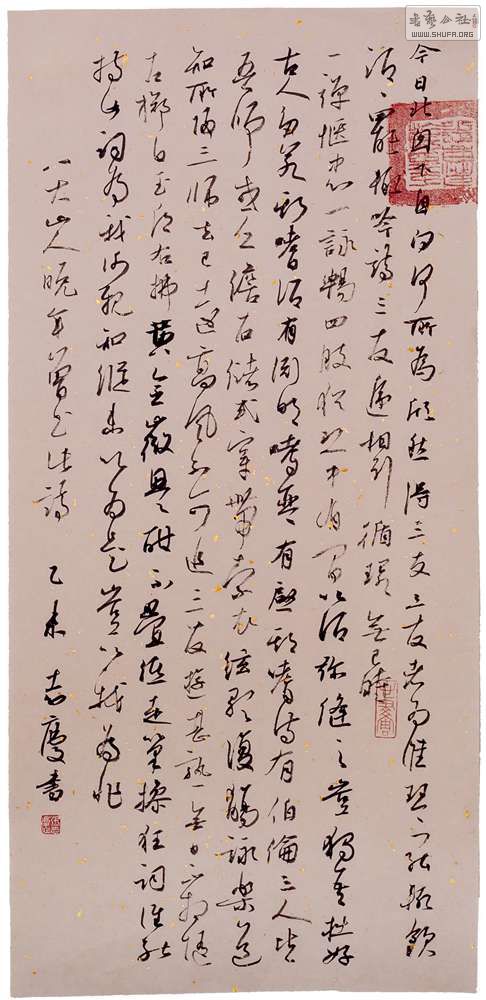 今日北窗下自问何所為欣然得三友三友者為谁琴罷輒飲
酒〻罷輒吟詩三友遞相引循環無已時
一彈愜中心一詠暢四肢猶恐中有间以酒弥縫之豈獨吾拙好
古人多若斯嗜酒有淵明嗜琴有啟期嗜詩有伯倫三人皆
吾師或乏儋石儲或穿帶索衣弦歌復觴詠樂道
知所歸三師去已遠高風不可追三友遊甚熟無日不相随
左擲白玉卮右拂黄金徽興酣不疊纸走筆操狂詞谁能
持此詞為我謝親知縱未以為是豈以我為非
八大山人晚年曾書此詩 乙未志慶書
書藝公社
WWW.SHUFA.ORG